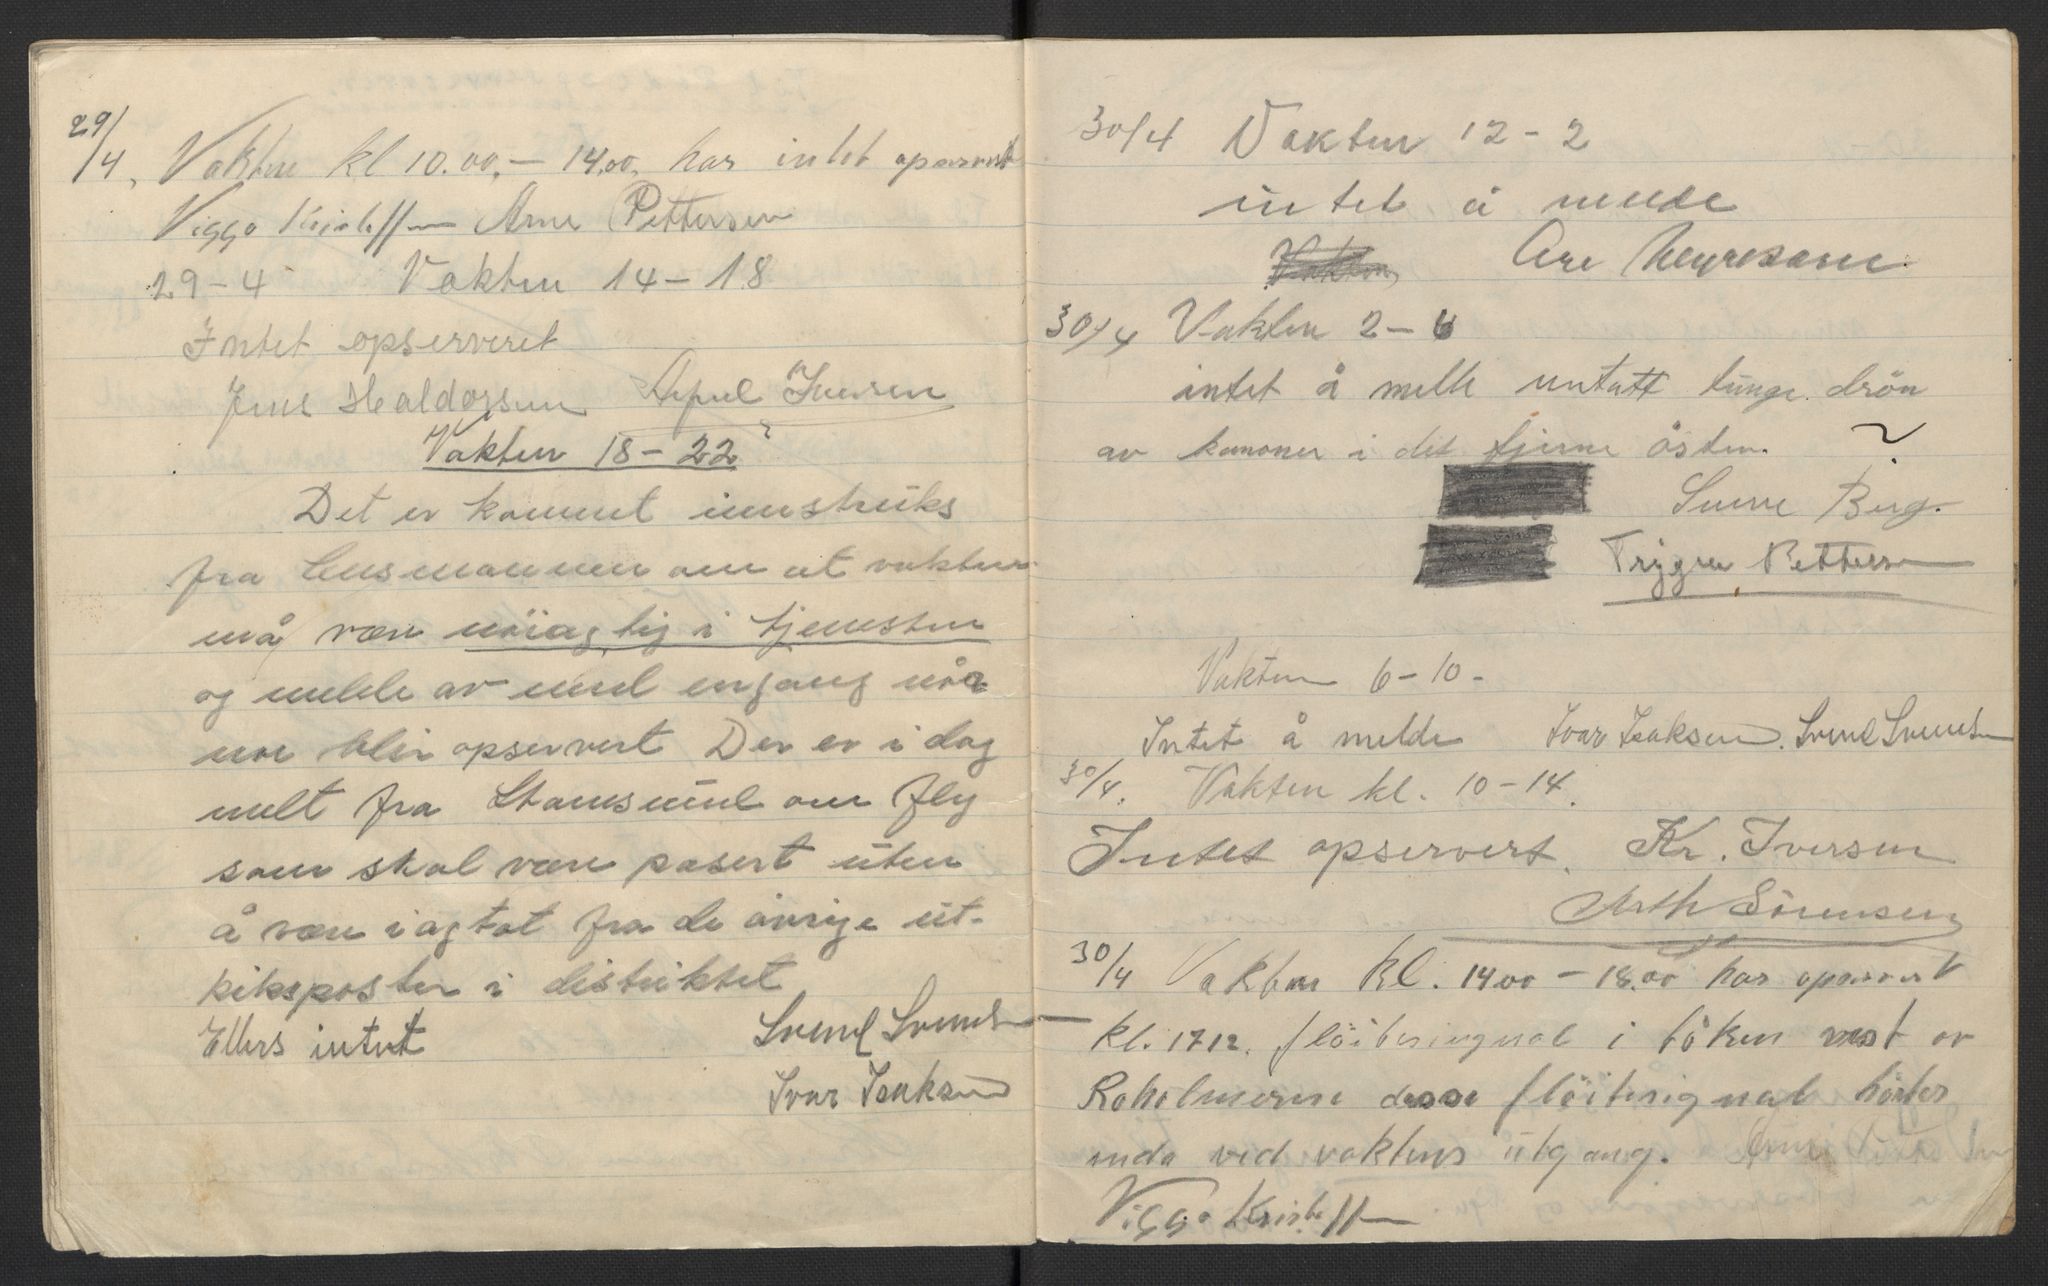 29/4. Vakten kl 10.00. – 14.00. har intet opservert
Viggo Kristoffersen Arne Pettersen
29 – 4 Vakten 14 – 18
Intet opserveret
Jens Haldorsen Iversen
Vakten 18 – 22
Det er kommet innstruks
fra lensmannen om at vakten
må være nöiagtig i tjenesten
og melde av med engang når
noe blir opservert Der er i dag
melt fra Stamsund om fly
som skal være pasert uten
å være iagtat fra de övrige ut-
kiksposter i distriktet
Ellers intet Svend Svendsen
Ivar Isaksen
30/4 Vakten 12 – 2
intet å melde
Vakten
30/4 Vakten 2 – 6
intet å melle untatt tunge drön
av kanoner i det fjerne östen. ?
Berg.
Trygve Pettersen
Vakten 6 – 10 –
Intet å melde Ivar Isaksen. Svend Svendsen
30/4. Vakten kl. 10 – 14.
Intet opservert. Kr. Iversen
Arth Sörensen
30/4 Vakten kl. 14 00 – 18.00 har opservert
kl. 17 12. flöitesingnal i tåken vest av
Roholmerne desse flöitesignal hörtes
enda ved vaktens utgang. Arne Pettersen
Viggo Kristoffersen